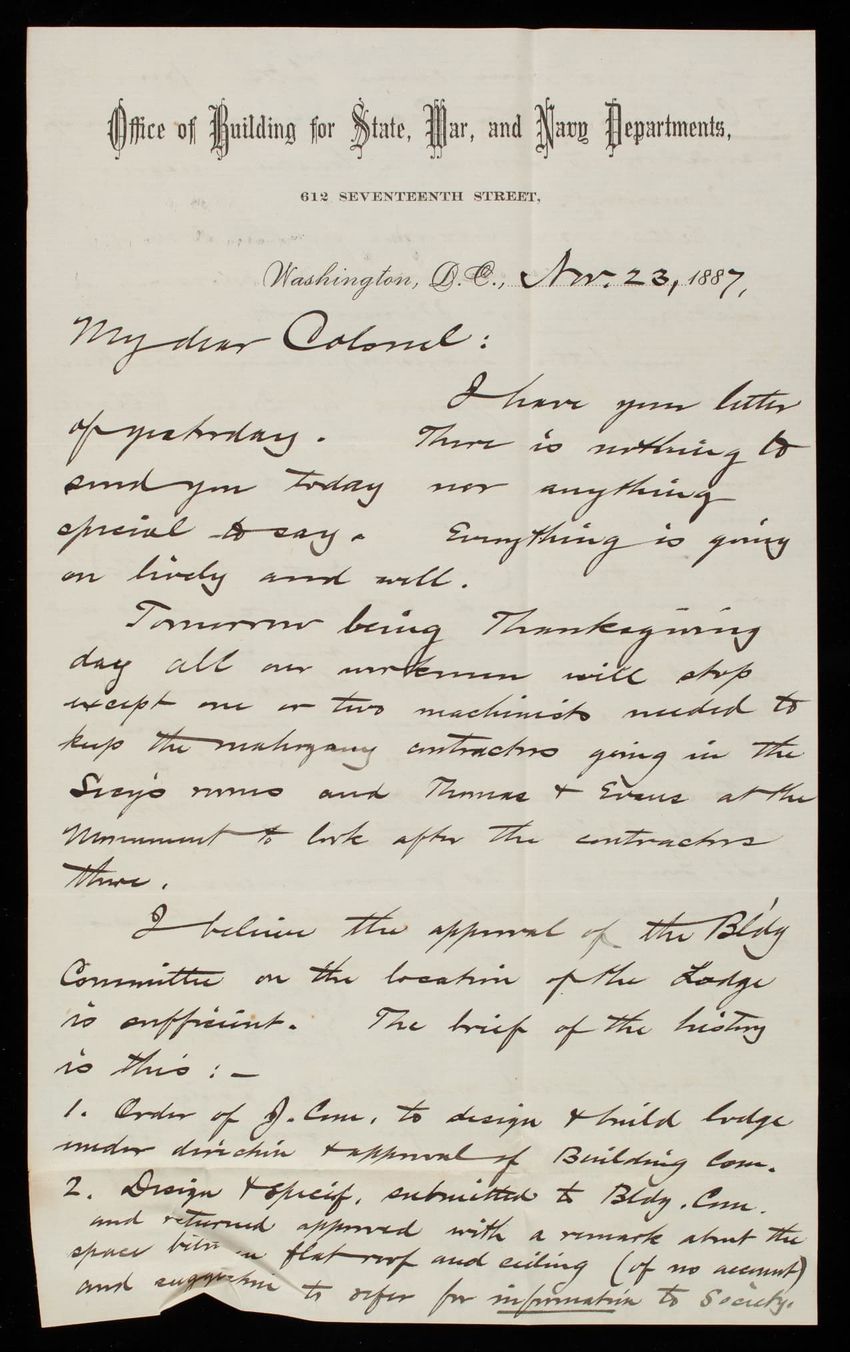 Office of Building for State, War, and Navy Departments,
612 SEVENTEENTH STREET,
Washington, D.C., Nov. 23, 1887,
My dear Colonel:
I have your letter
of yesterday. There is nothing to
send you today nor anything
special to say. Everything is going
on lively and well.
Tomorrow being Thanksgiving
day all our workmen will stop
except one or two machinists needed to
keep the mahogany contractors going in the
Secy's rooms and Thomas & Evans at the
Monument to look after the contractors
there.
I believe the approval of the Bldg
Committee on the location of the Lodge
is sufficient. The brief of the history
is this:—
1. Order of J. Com. to design & build lodge
under direction & approval of Building Com.
2. Design & specif. submitted to Bldg. Com.
and returned approved with a remark about the
space flat roof and ceiling (of no account)
and suggestion to refer for information to Society.